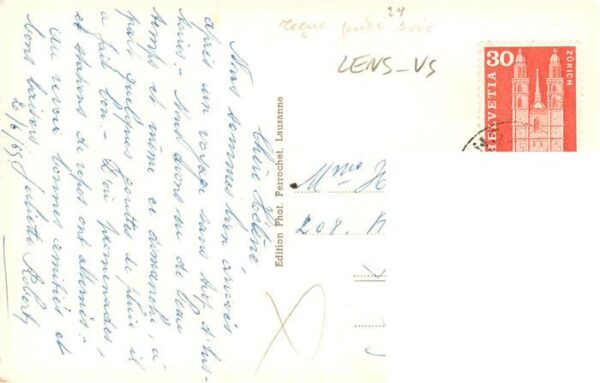 24
reçu jeudi soir
LENS-VS
30
HELVETIA
ZÜRICH
Chère Hélène,
Nous sommes bien arrivés
après un voyage sans trop d'his-
toires. Nous avons eu de beau
temps et même ce dimanche, à
part quelques gouttes de pluie il
a fait bon. D'où promenades,
et stations de repos ont alternés.
Au revoir bonnes amitiés et
bons baisers.
20/6/65 Juliette Robert
Edition Phot. Perrochet, Lausanne
Mme H
208.